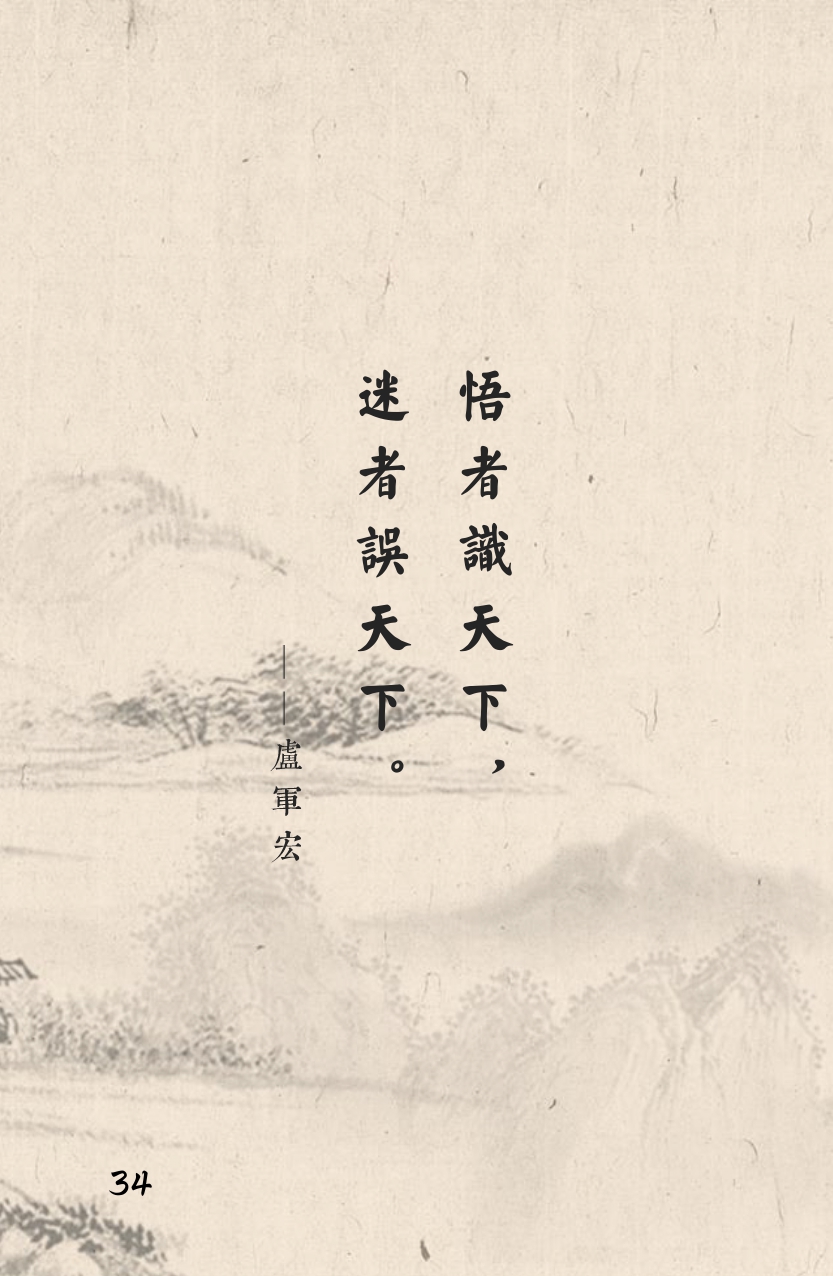 悟者識天下，
迷者誤天下。
——盧軍宏
34